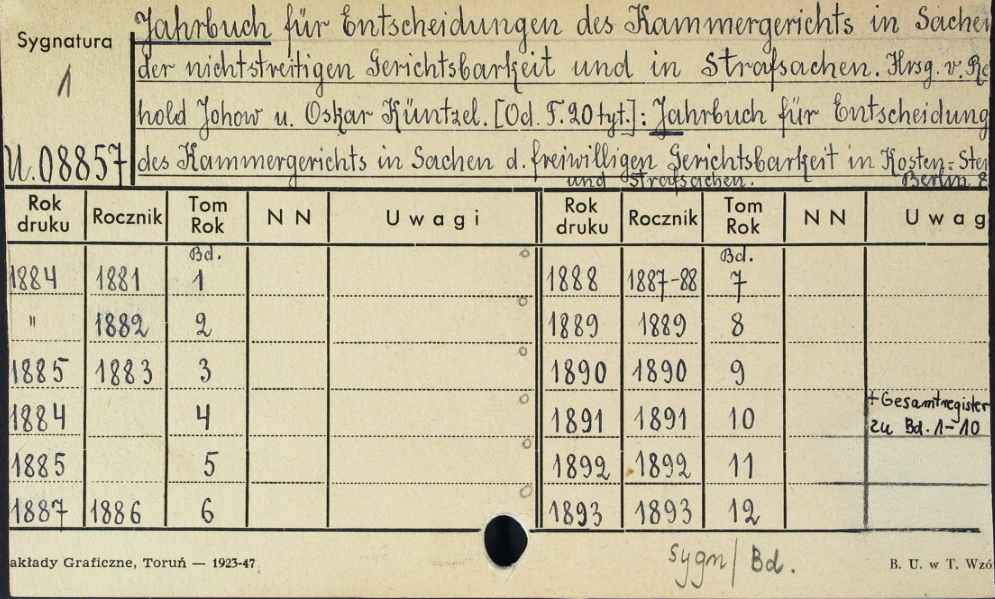 Sygnatura
1
U.08857
Jahrbuch für Entscheidungen des Kammergerichts in Sachen
der nichtstreitigen Gerichtsbarkeit und in Strafsachen. Hrsg. v. Re
hold Johow u. Oskar Küntzel. [Od. T. 20 tyt.]: Jahrbuch für Entscheidung
des Kammergerichts in Sachen d. freiwilligen Gerichtsbarkeit in Kosten- Ste
und Strafsachen. Berlin. 8
Rok druku Rocznik Tom Rok N N Uwagi Rok druku Rocznik Tom Rok N N Uwag
Bd. Bd.
1884 1881 1 1888 1887-88 7
" 1882 2 1889 1889 8
1885 1883 3 1890 1890 9
1884 4 1891 1891 10 + Gesamtregister
zu Bd. 1-10
1885 5 1892 1892 11
1887 1886 6 1893 1893 12
akłady Graficzne, Toruń — 1923-47
sygn/Bd.
B. U. w T. Wzó